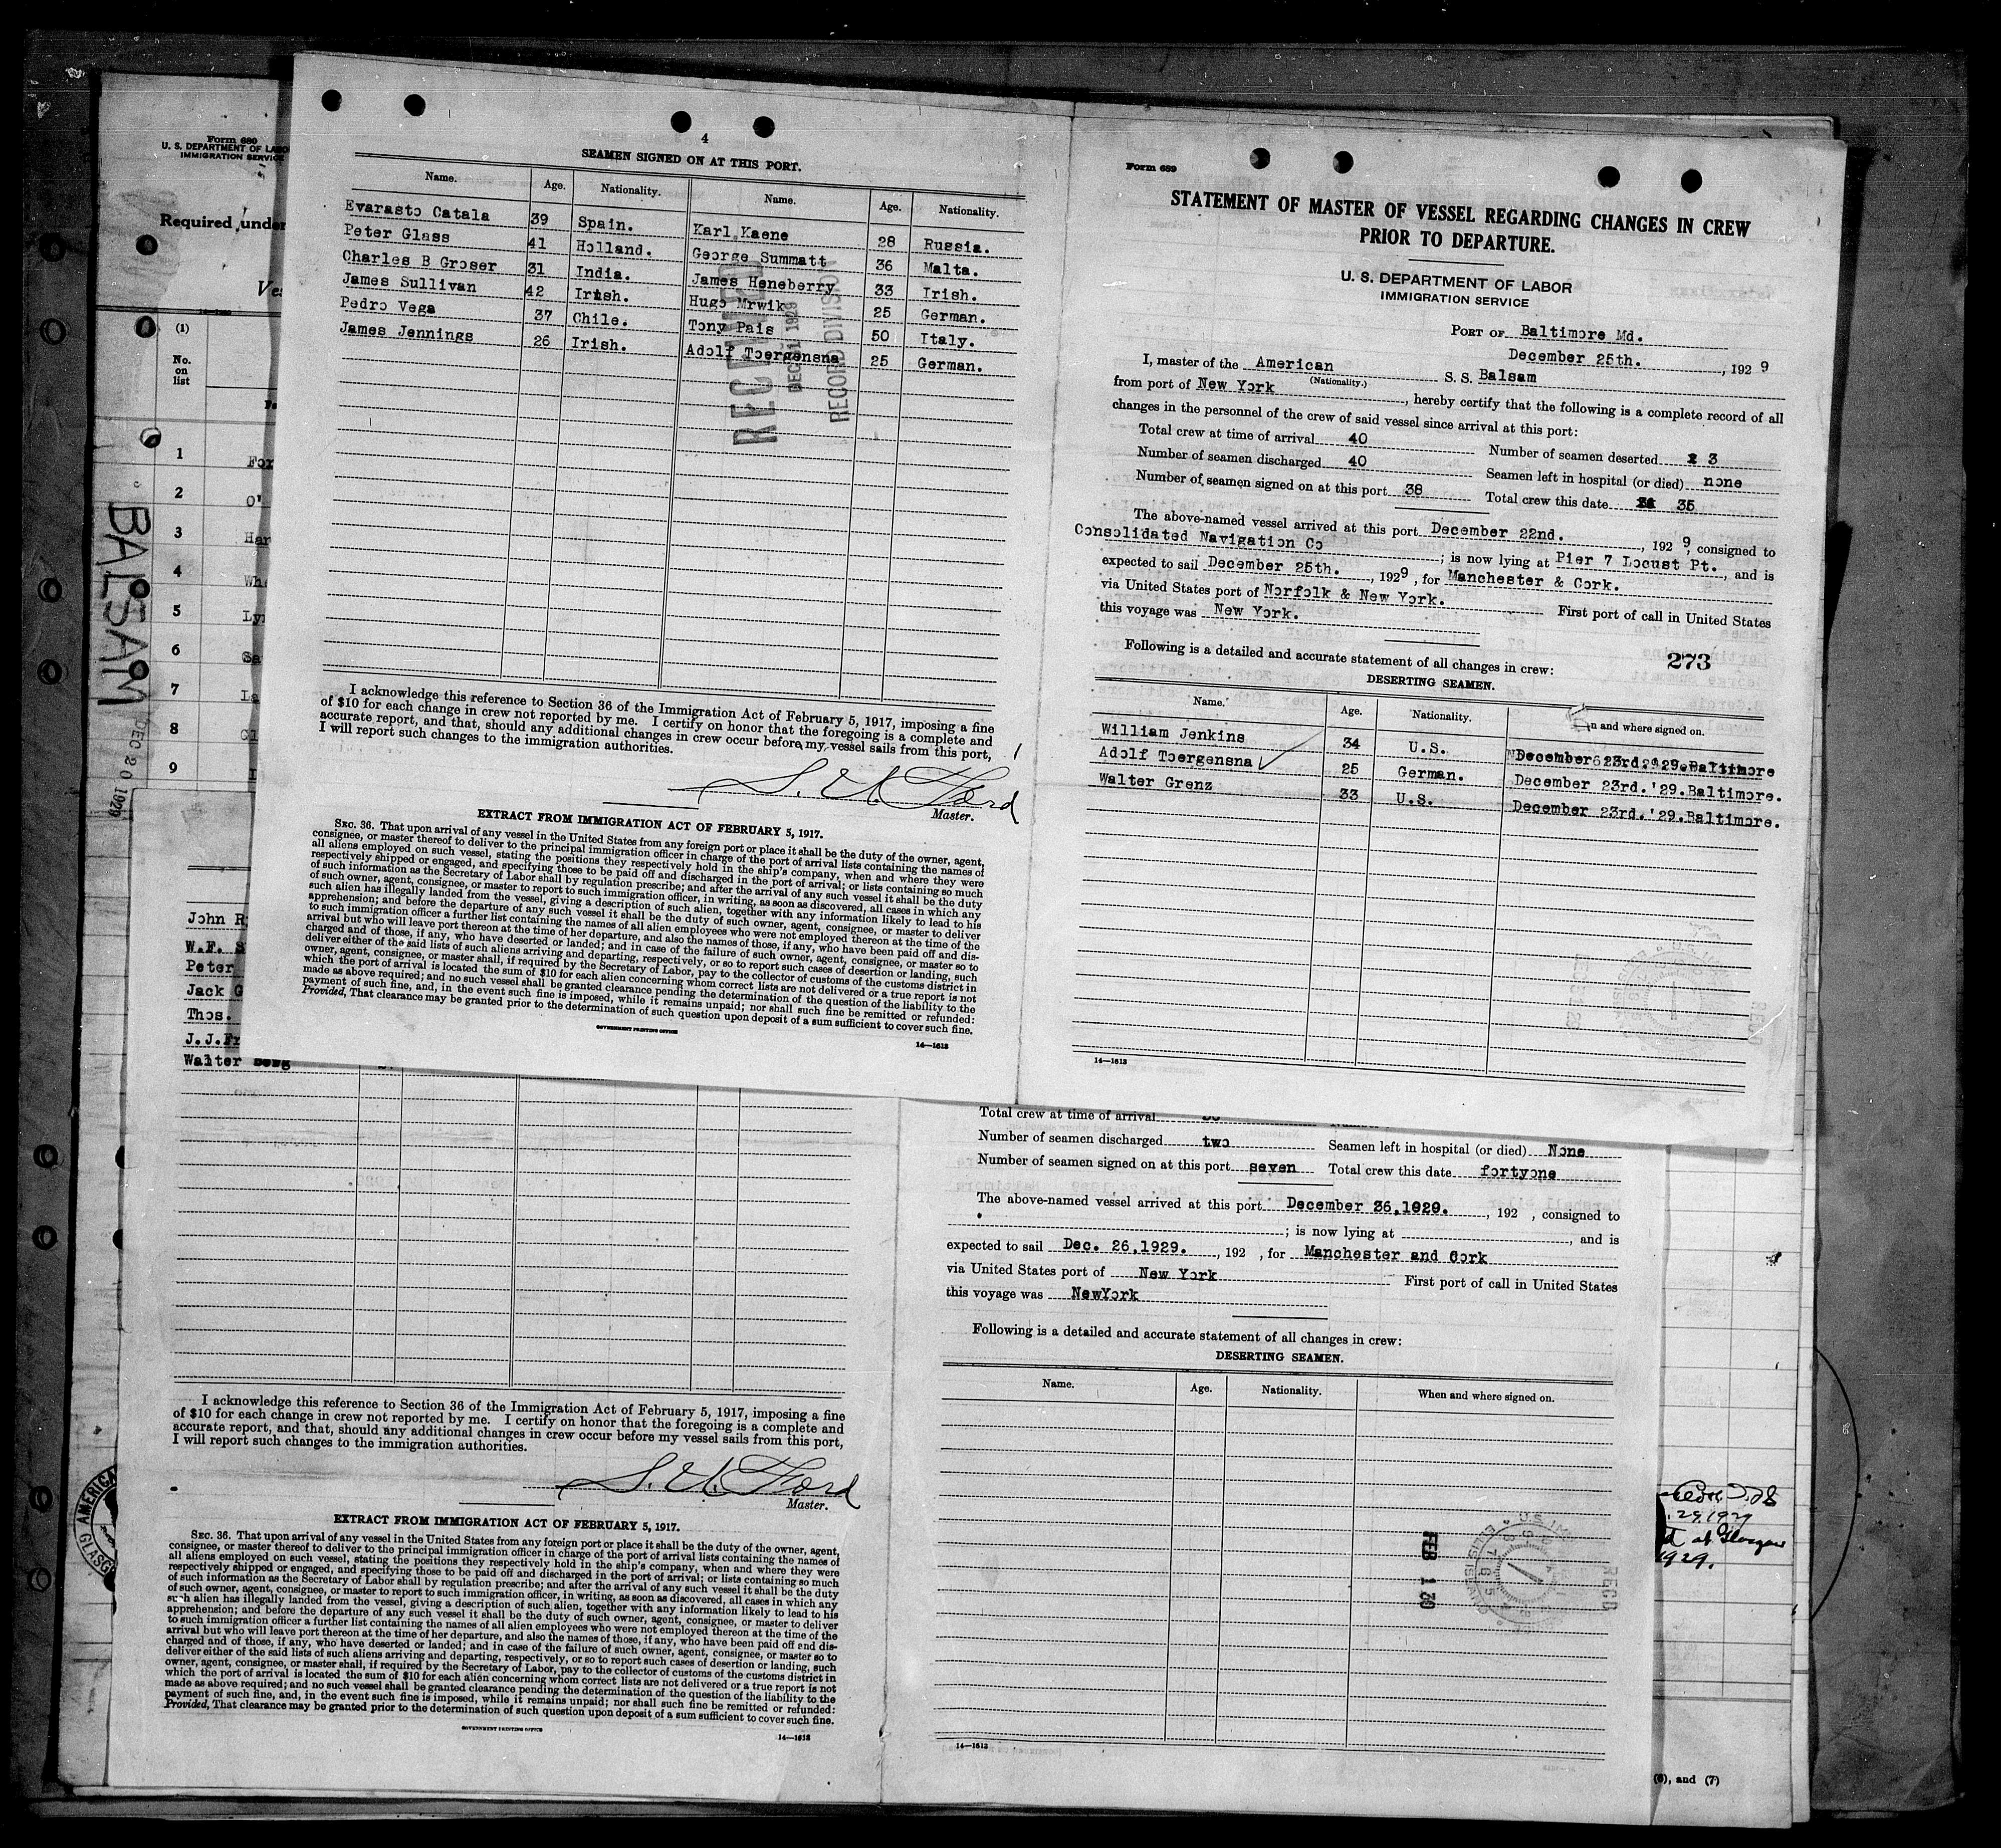 Form 680
U. S. DEPARTMENT OF LABO
IMMIGRATION SERVICE
Required under
Ves
(1)
No.
on
list
1 For
2 O'
3 Har
4 Whe
5 Lyn
6 Sa
7 La
8 Cl
9
BALSAM
DEC 20 1929
4
SEAMEN SIGNED ON AT THIS PORT.
Name. Age. Nationality. Name. Age. Nationality.
Evarasto Catala 39 Spain. Karl Kaene 28 Russia.
Peter Glass 41 Holland. George Summatt 36 Malta.
Charles B Groser 31 India. James Heneberry 33 Irish.
James Sullivan 42 Irish. Hugo Mrwik 25 German.
Pedro Vega 37 Chile. Tony Pais 50 Italy.
James Jennings 26 Irish. Adolf Toergensna 25 German.
RECEIVED
DEC 31 1929
RECORD DIVISION
I acknowledge this reference to Section 36 of the Immigration Act of February 5, 1917, imposing a fine
of $10 for each change in crew not reported by me. I certify on honor that the foregoing is a complete and
accurate report, and that, should any additional changes in crew occur before my vessel sails from this port,
I will report such changes to the immigration authorities.
Ford
Master.
EXTRACT FROM IMMIGRATION ACT OF FEBRUARY 5, 1917.
SEC. 36. That upon arrival of any vessel in the United States from any foreign port or place it shall be the duty of the owner, agent,
consignee, or master thereof to deliver to the principal immigration officer in charge of the port of arrival lists containing the names of
all aliens employed on such vessel, stating the positions they respectively hold in the ship's company, when and where they were
respectively shipped or engaged, and specifying those to be paid off and discharged in the port of arrival; or lists containing so much
of such information as the Secretary of Labor shall by regulation prescribe; and after the arrival of any such vessel it shall be the duty
of such owner, agent, consignee, or master to report to such immigration officer, in writing, as soon as discovered, all cases in which any
such alien has illegally landed from the vessel, giving a description of such alien, together with any information likely to lead to his
apprehension; and before the departure of any such vessel it shall be the duty of such owner, agent, consignee, or master to deliver
to such immigration officer a further list containing the names of all alien employees who were not employed thereon at the time of the
arrival but who will leave port thereon at the time of her departure, and also the names of those, if any, who have been paid off and dis-
charged and of those, if any, who have deserted or landed; and in case of the failure of such owner, agent, consignee, or master so to
deliver either of the said lists of such aliens arriving and departing, respectively, or so to report such cases of desertion or landing, such
owner, agent, consignee, or master shall, if required by the Secretary of Labor, pay to the collector of customs of the customs district in
which the port of arrival is located the sum of $10 for each alien concerning whom correct lists are not delivered or a true report is not
made as above required; and no such vessel shall be granted clearance pending the determination of the question of the liability to the
payment of such fine, and, in the event such fine is imposed, while it remains unpaid; nor shall such fine be remitted or refunded:
Provided, That clearance may be granted prior to the determination of such question upon deposit of a sum sufficient to cover such fine.
GOVERNMENT PRINTING OFFICE
14—1613
Form 689
STATEMENT OF MASTER OF VESSEL REGARDING CHANGES IN CREW
PRIOR TO DEPARTURE.
U. S. DEPARTMENT OF LABOR
IMMIGRATION SERVICE
PORT OF Baltimore Md.
December 25th. , 192 9
I, master of the American S. S. Balsam
(Nationality.)
from port of New York , hereby certify that the following is a complete record of all
changes in the personnel of the crew of said vessel since arrival at this port:
Total crew at time of arrival 40 Number of seamen deserted 3
Number of seamen discharged 40 Seamen left in hospital (or died) none
Number of seamen signed on at this port 38 Total crew this date 35
The above-named vessel arrived at this port December 22nd. , 192 9, consigned to
Consolidated Navigation Co ; is now lying at Pier 7 Locust Pt. , and is
expected to sail December 25th. , 192 9 , for Manchester & Cork.
via United States port of Norfolk & New York. First port of call in United States
this voyage was New York.
Following is a detailed and accurate statement of all changes in crew: 273
DESERTING SEAMEN.
Name. Age. Nationality. n and where signed on.
William Jenkins 34 U.S. December 23rd. '29. Baltimore
Adolf Toergensna 25 German. December 23rd.'29.Baltimore.
Walter Grenz 33 U.S. December 23rd.'29.Baltimore.
14—1613
John R
W.F. S
Peter
Jack G
Thos.
J.J.Fr
Walter
I acknowledge this reference to Section 36 of the Immigration Act of February 5, 1917, imposing a fine
of $10 for each change in crew not reported by me. I certify on honor that the foregoing is a complete and
accurate report, and that, should any additional changes in crew occur before my vessel sails from this port,
I will report such changes to the immigration authorities.
Ford
Master.
EXTRACT FROM IMMIGRATION ACT OF FEBRUARY 5, 1917.
SEC. 36. That upon arrival of any vessel in the United States from any foreign port or place it shall be the duty of the owner, agent,
consignee, or master thereof to deliver to the principal immigration officer in charge of the port of arrival lists containing the names of
all aliens employed on such vessel, stating the positions they respectively hold in the ship's company, when and where they were
respectively shipped or engaged, and specifying those to be paid off and discharged in the port of arrival; or lists containing so much
of such information as the Secretary of Labor shall by regulation prescribe; and after the arrival of any such vessel it shall be the duty
of such owner, agent, consignee, or master to report to such immigration officer, in writing, as soon as discovered, all cases in which any
such alien has illegally landed from the vessel, giving a description of such alien, together with any information likely to lead to his
apprehension; and before the departure of any such vessel it shall be the duty of such owner, agent, consignee, or master to deliver
to such immigration officer a further list containing the names of all alien employees who were not employed thereon at the time of the
arrival but who will leave port thereon at the time of her departure, and also the names of those, if any, who have been paid off and dis-
charged and of those, if any, who have deserted or landed; and in case of the failure of such owner, agent, consignee, or master so to
deliver either of the said lists of such aliens arriving and departing, respectively, or so to report such cases of desertion or landing, such
owner, agent, consignee, or master shall, if required by the Secretary of Labor, pay to the collector of customs of the customs district in
which the port of arrival is located the sum of $10 for each alien concerning whom correct lists are not delivered or a true report is not
made as above required; and no such vessel shall be granted clearance pending the determination of the question of the liability to the
payment of such fine, and, in the event such fine is imposed, while it remains unpaid; nor shall such fine be remitted or refunded:
Provided, That clearance may be granted prior to the determination of such question upon deposit of a sum sufficient to cover such fine.
GOVERNMENT PRINTING OFFICE
14—1613
Total crew at time of arrival
Number of seamen discharged two Seamen left in hospital (or died) None
Number of seamen signed on at this port seven Total crew this date fortyone
The above-named vessel arrived at this port December 26,1929. , 192 , consigned to
; is now lying at , and is
expected to sail Dec. 26,1929. , 192 , for Manchester and Cork
via United States port of New York First port of call in United States
this voyage was NewYork
Following is a detailed and accurate statement of all changes in crew:
DESERTING SEAMEN.
Name. Age. Nationality. When and where signed on.
FEB 1 30
RECD
14—1613
29, 1929
at Glasgow
1929.
(6), and (7)
AMERICA
GLASG